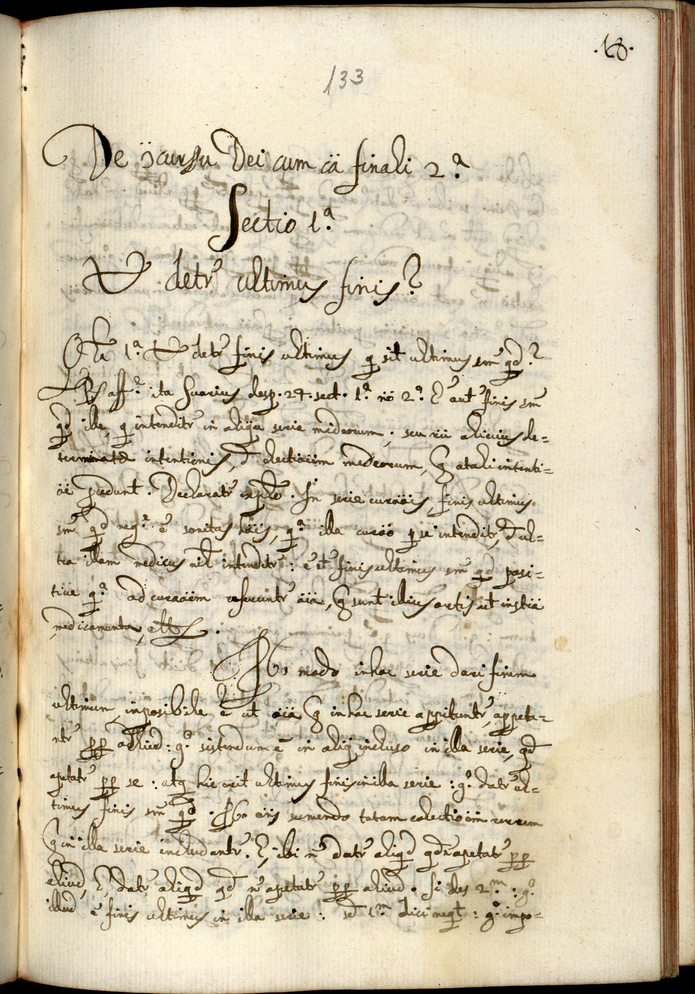 .18.
133
De ɔcursu Dei cum cã finali 2.ª
Sectio 1.ª
V detr̃ ultimus finis?
1.ª V detr̃ finis ultimus q̃ sit ultimus sm̃ qd̃?
aff.ᵉ ita Suarius desp. 24. sect. 1.ª nõ 2.ª E aut̃ finis sm̃
qd̃ ille, q̃ intenditr̃ in aliqua serie mediorum; seu vi alicuius de=
terminatæ intentionis, electionem mediorum, q̃ a tali intenti-
õe pedunt. Declaratr̃ explo. In serie curãõis, finis ultimus
sm̃ qd̃ neg.ᵉ ẽ sanitas, q.ª illa curãõ p se intenditr̃, ul=
tra illam medicus nil intenditr̃: ẽ et̃ finis ultimus sm̃ qd̃ posi=
tive q.ª ad curãõem referuntr̃ õia, q̃ sunt illius artis ut instia
medicamenta, ettᵃ.
modo in hac serie dari finem
ultimum, imposibile ẽ ut õia q̃ in hac serie appetuntr̃, appeta=
ntr̃ pp̃ aliud: g.º sistendum ẽ in aliq̃ incluso in illa serie, qd̃
apetatr̃ pp̃ se: atq̃ hic erit ultimus finis in illa serie: g.º datr̃ ul=
timus finis sm̃ qd̃. sumendo totam colectionem rerum
q̃ in illa serie includuntr̃. ibi ñ datr̃ aliqd̃ qd̃ ñ apetatr̃ pp̃
aliud, datr̃ aliqd̃ qd̃ ñ apetatr̃ pp̃ aliud. Si des 2.ᵐ: g.º
illud ẽ finis ultimus in illa serie: sed 1.ᵐ dici neqt̃: g.º impo=